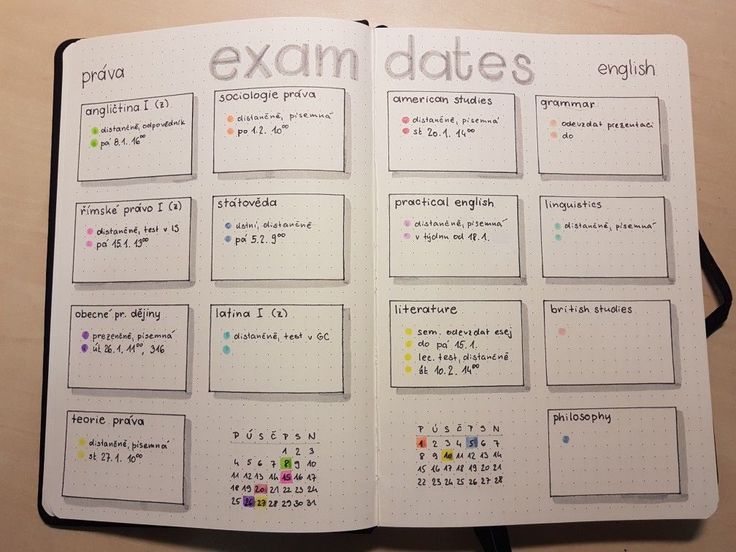 exam dates
práva
angličtina I (z)
distančně, odpovědník
pá 8.1. 16⁰⁰
sociologie práva
distančně, písemná
po 1.2. 10⁰⁰
římské právo I (z)
distančně, test v IS
pá 15.1. 13⁰⁰
státověda
ústní, distančně
pá 5.2. 9⁰⁰
obecné pr. dějiny
prezenčně, písemná
út 26.1. 11⁰⁰, 316
latina I (z)
distančně, test v GC
teorie práva
distančně, písemná
st 27.1. 10⁰⁰
P Ú S Č P S N
1 2 3
4 5 6 7 8 9 10
11 12 13 14 15 16 17
18 19 20 21 22 23 24
25 26 27 28 29 30 31
english
american studies
distančně, písemná
st 20.1. 14⁰⁰
grammar
odevzdat prezentaci
do
practical english
distančně, písemná
v týdnu od 18.1.
linguistics
distančně, písemná
literature
sem. odevzdat esej
do pá 15.1.
lec. test, distančně
st 10.2. 14⁰⁰
british studies
P Ú S Č P S N
1 2 3 4 5 6 7
8 9 10 11 12 13 14
15 16 17 18 19 20 21
22 23 24 25 26 27 28
philosophy